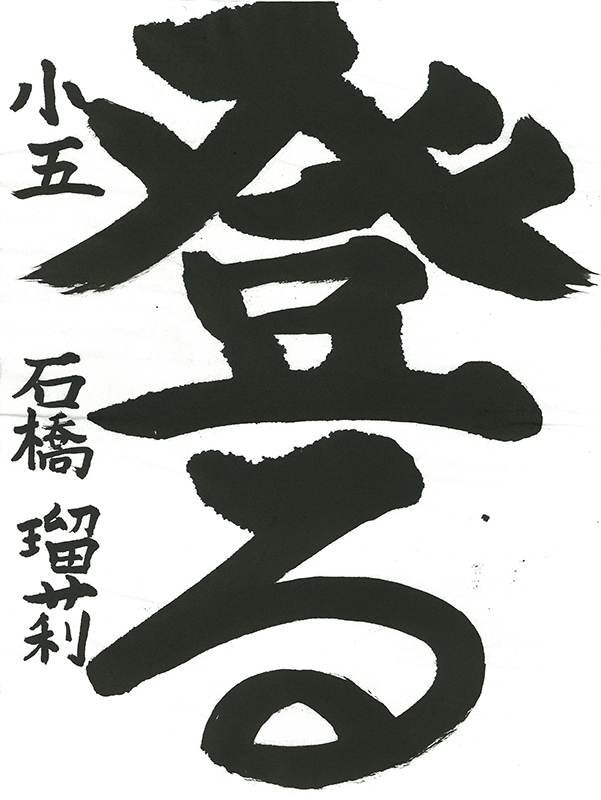 登る
小五 石橋瑠莉